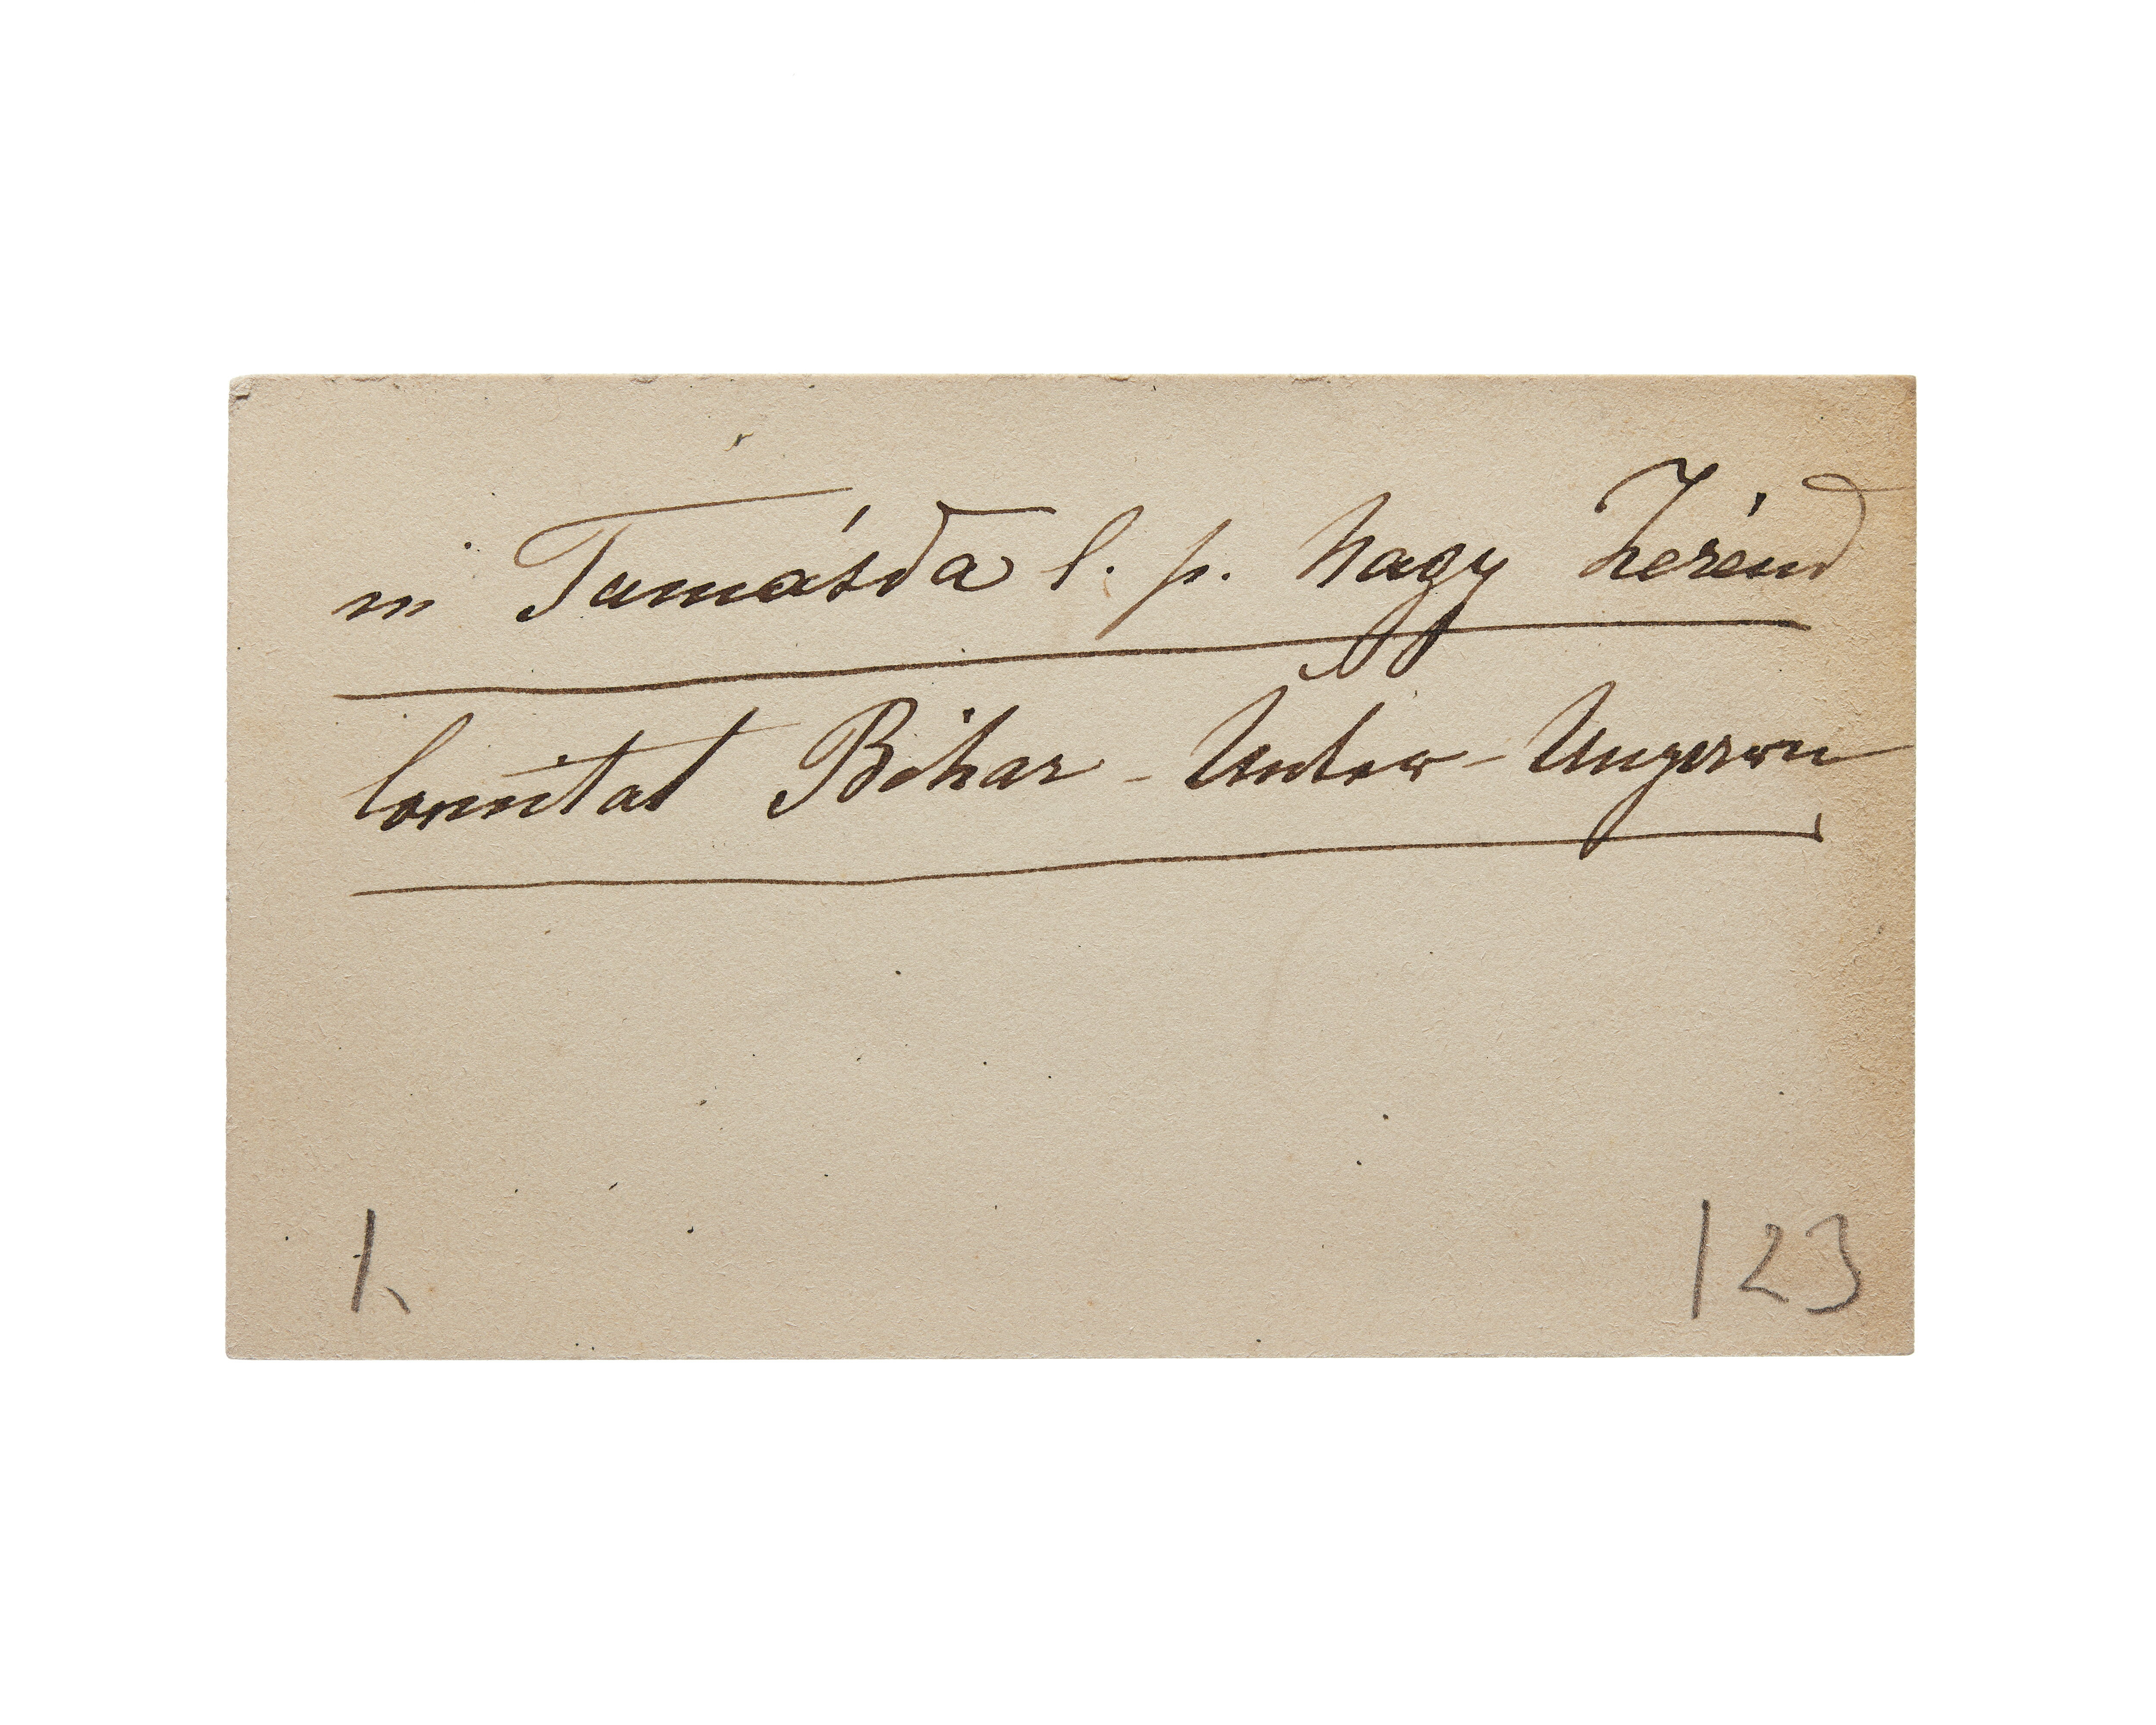 in Tamásda l. p. Nagy Zerénd
Comitat Bihar - Unter-Ungarn
123